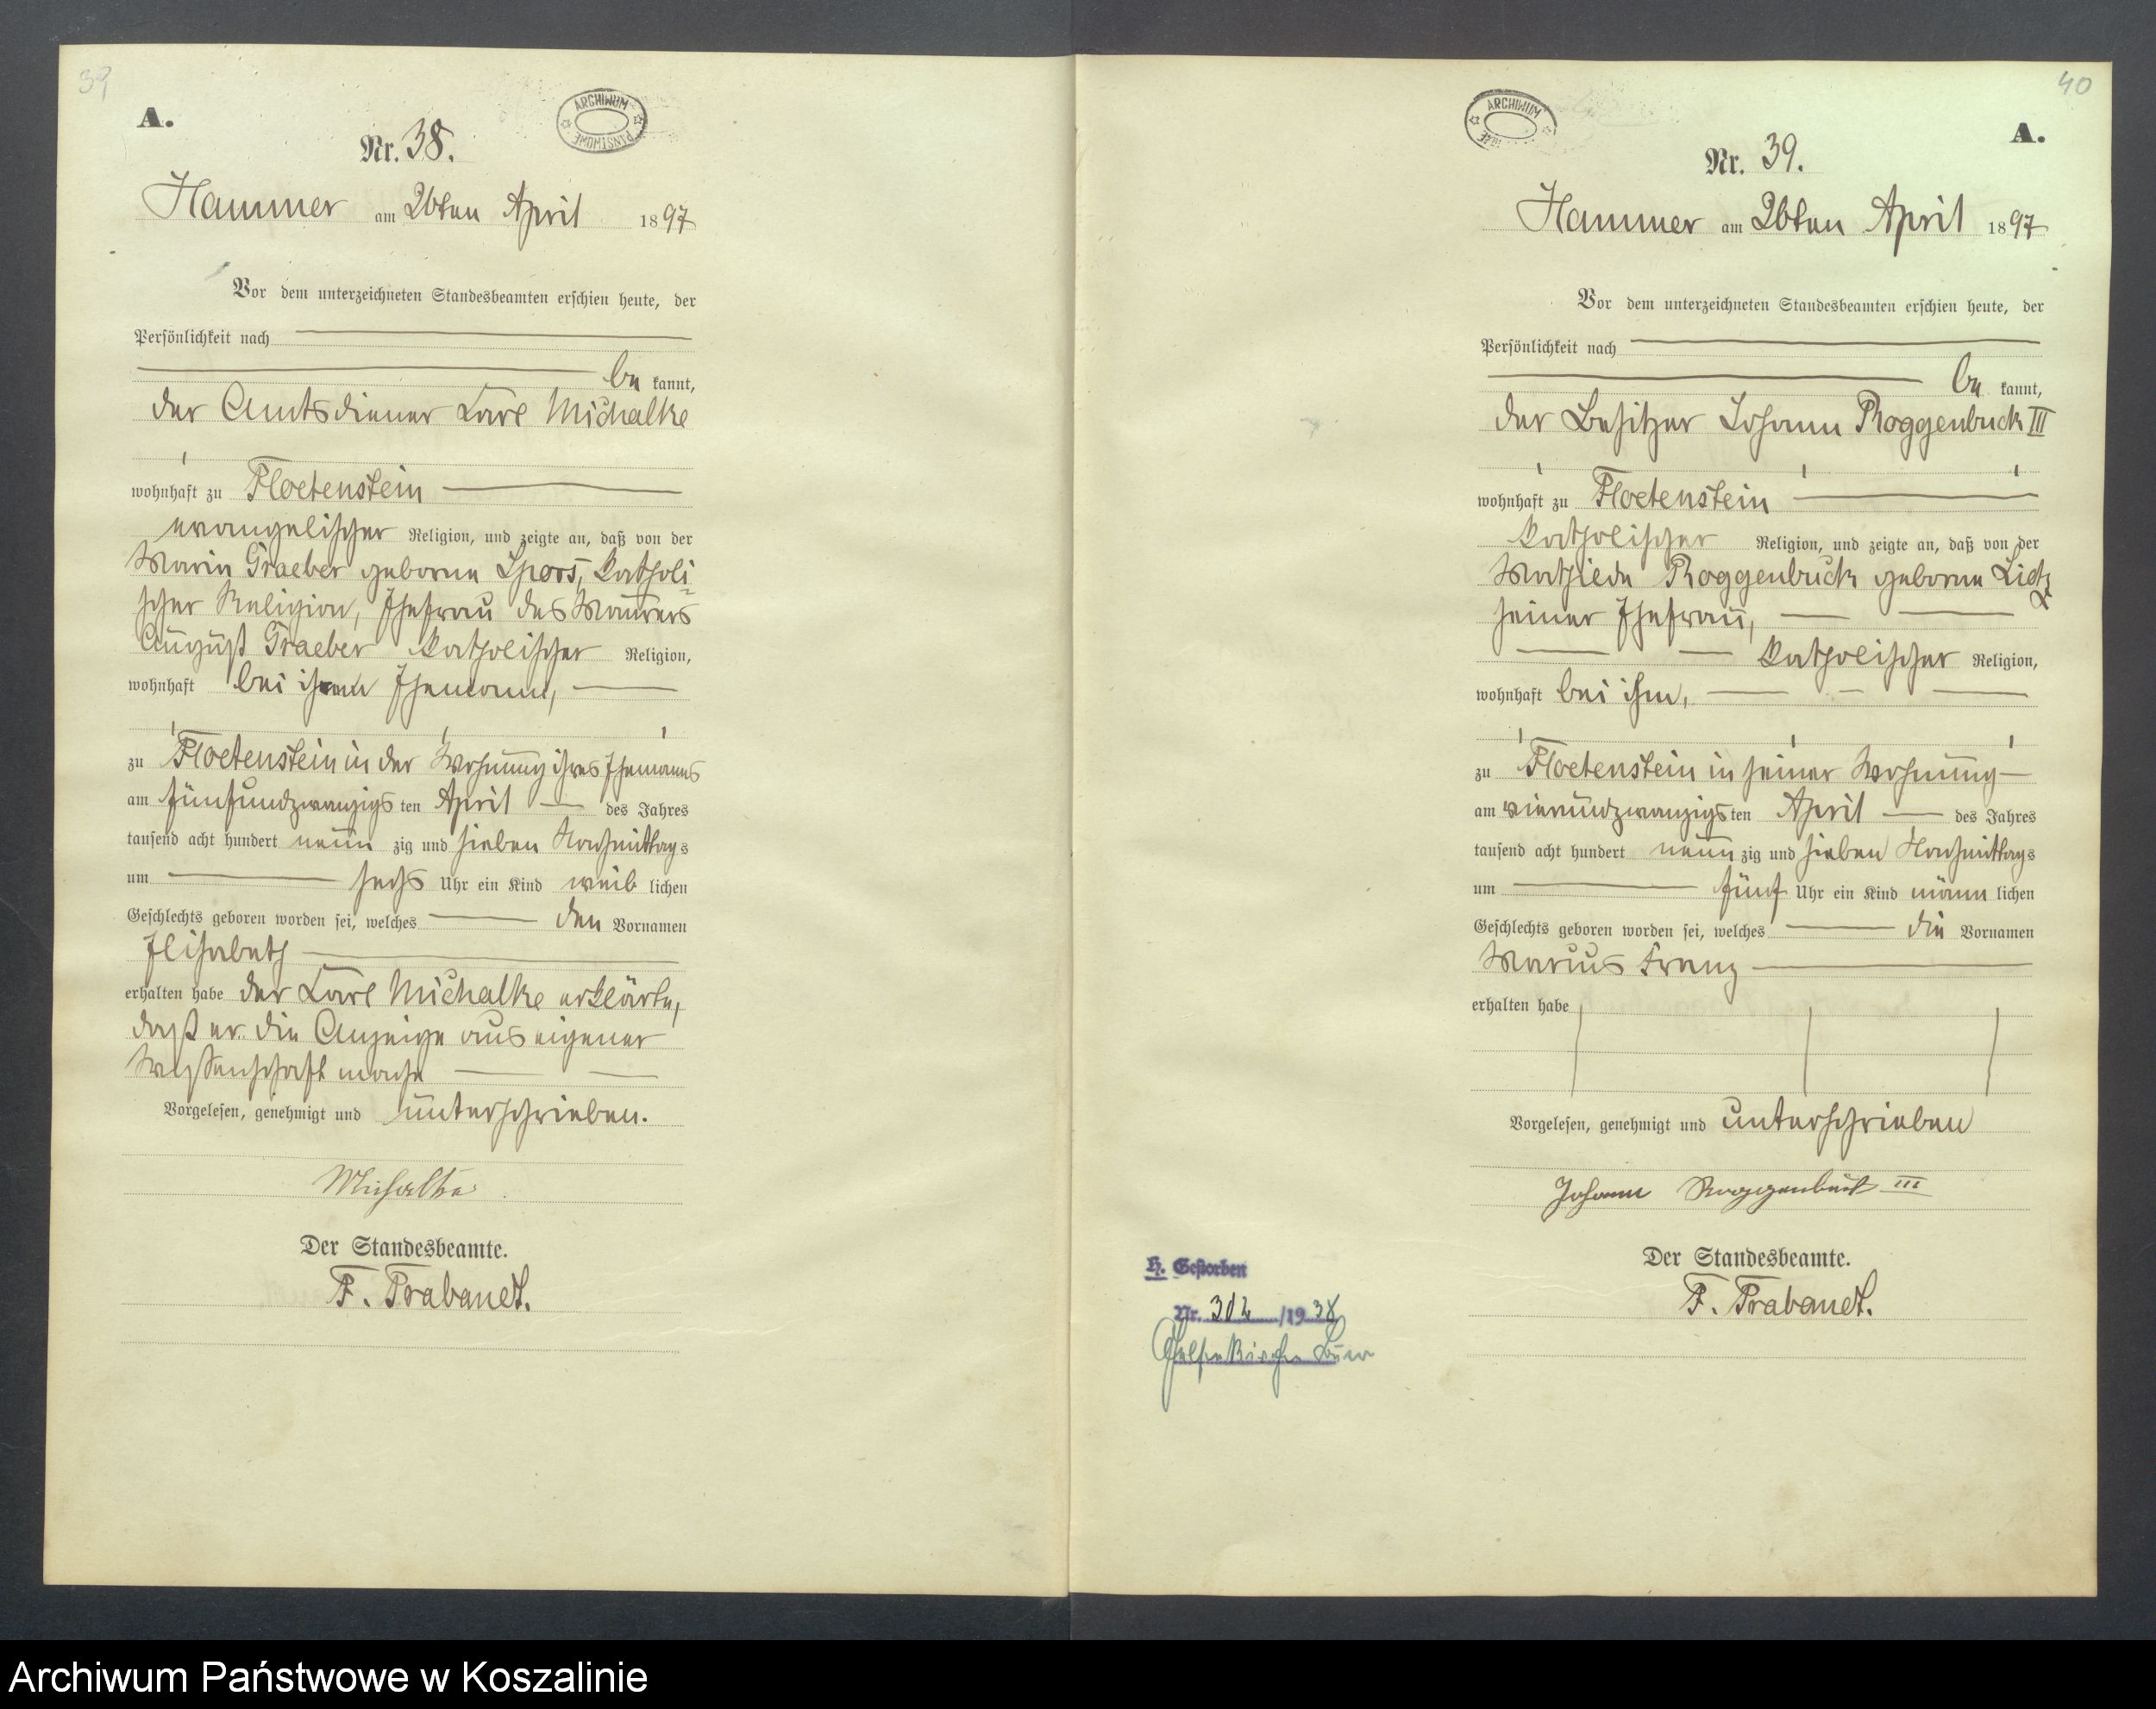 39
A.
ARCHIWUM PAŃSTWOWE
Nr. 38.
Hammer am 26ten April 1897
Vor dem unterzeichneten Standesbeamten erschien heute, der
Persönlichkeit nach
be kannt,
der Amtsdiener Karl Michalke
wohnhaft zu Floetenstein
evangelischer Religion, und zeigte an, daß von der
Marie Graeber geborne Spors, katholi-
scher Religion, Ehefrau des Maurers
August Graeber katholischer Religion,
wohnhaft bei ihrem Ehemann,
zu Floetenstein in der Wohnung ihres Ehemanns
am fünfundzwanzigs ten April des Jahres
tausend acht hundert neun zig und sieben Nachmittags
um sechs Uhr ein Kind weib lichen
Geschlechts geboren worden sei, welches den Vornamen
Elisabeth
erhalten habe der Karl Michalke erklärte,
daß er die Anzeige aus eigener
Wissenschaft mache
Vorgelesen, genehmigt und unterschrieben.
Michalke
Der Standesbeamte.
F. Trabandt.
40
A.
ARCHIWUM
Nr. 39.
Hammer am 26ten April 1897
Vor dem unterzeichneten Standesbeamten erschien heute, der
Persönlichkeit nach
be kannt,
der Besitzer Johann Roggenbuck III
wohnhaft zu Floetenstein
katholischer Religion, und zeigte an, daß von der
Mathilde Roggenbuck geborne Lietz
seiner Ehefrau,
katholischer Religion,
wohnhaft bei ihm,
zu Floetenstein in seiner Wohnung
am vierundzwanzigs ten April des Jahres
tausend acht hundert neun zig und sieben Nachmittags
um fünf Uhr ein Kind männ lichen
Geschlechts geboren worden sei, welches die Vornamen
Marius Franz
erhalten habe
Vorgelesen, genehmigt und unterschrieben
Johann Roggenbuck III
Der Standesbeamte.
F. Trabandt.
H. Gestorben
Nr. 302 /1938
Gelsenkirchen Buer
Archiwum Państwowe w Koszalinie